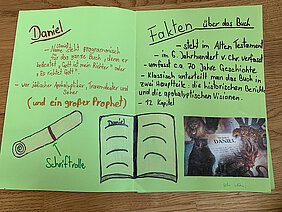 Daniel
- Name steht programmatisch
für das ganze Buch, denn er
bedeutet "Gott ist mein Richter" oder
"Es richtet Gott".
- war jüdischer Apokalyptiker, Traumdeuter und
Seher
(und ein großer Prophet)
Schriftrolle
Daniel
Fakten über das Buch
- steht im Alten Testament
- im 6. Jahrhundert v. Chr. verfasst
- umfasst ca. 70 Jahre Geschichte
- Klassisch unterteilt man das Buch in
zwei Hauptteile: die historischen Berichte
und die apokalyptischen Visionen.
- 12 Kapitel
DANIEL